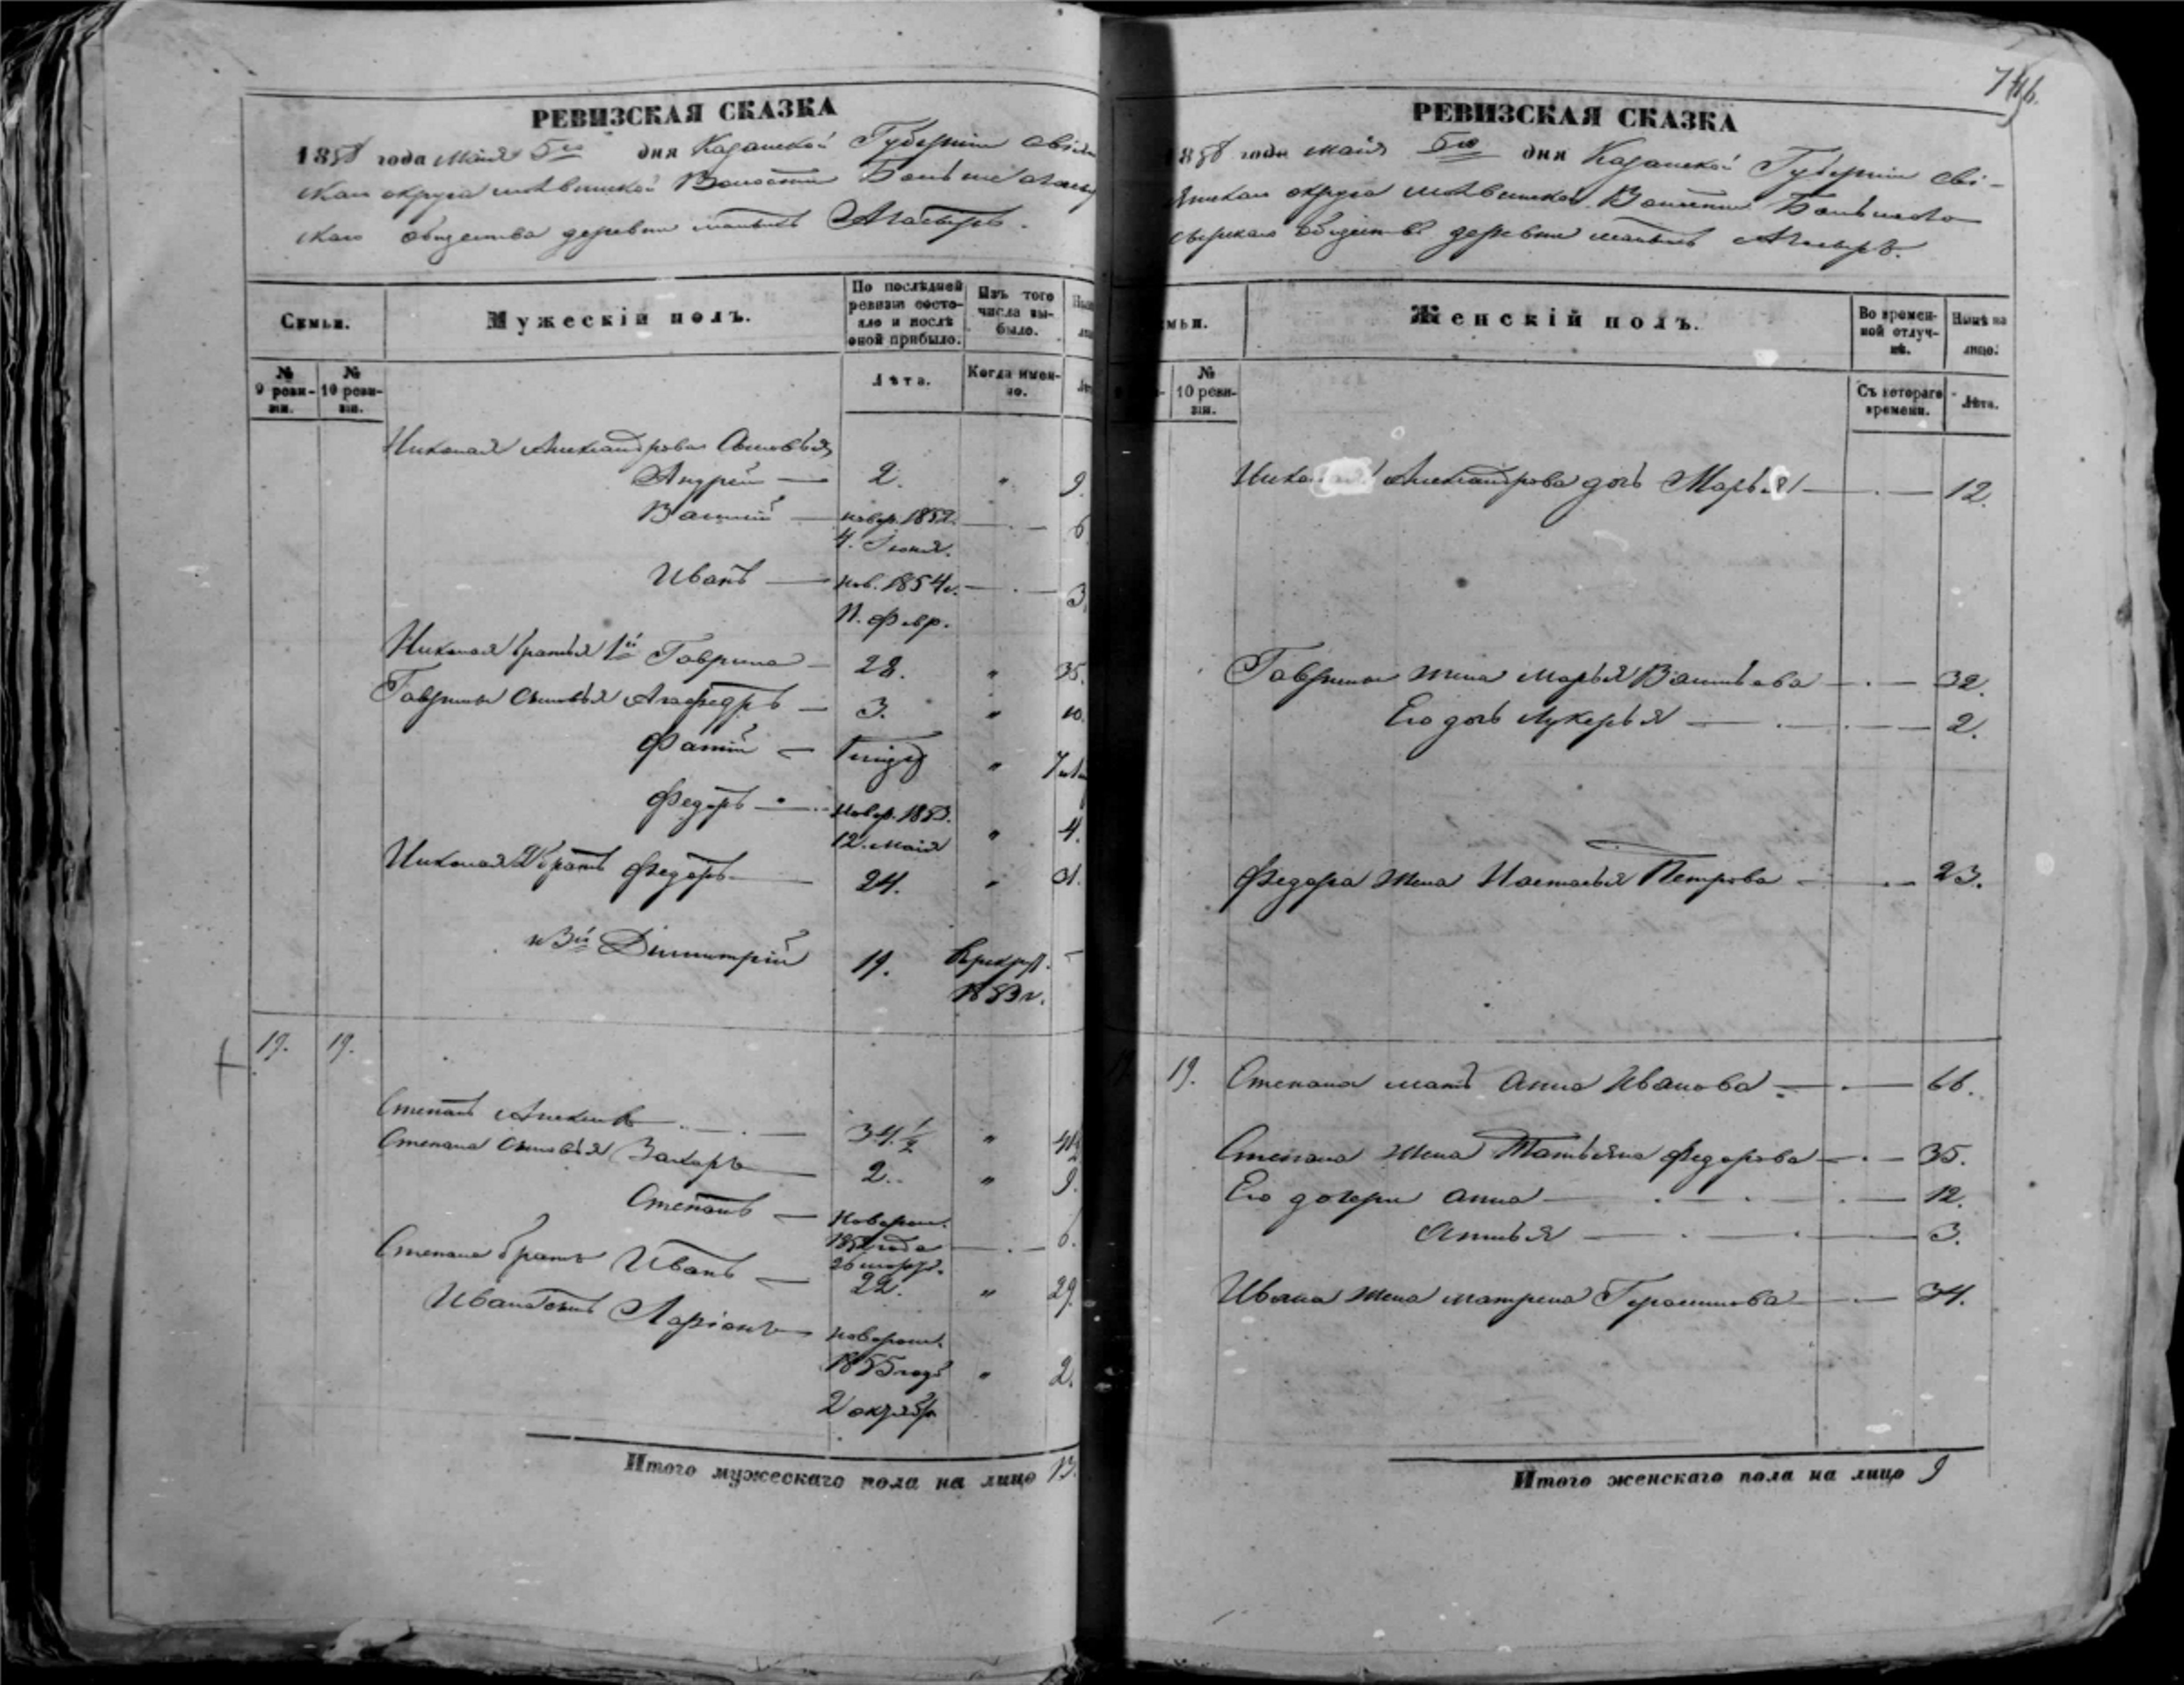 РЕВИЗСКАЯ СКАЗКА
1858 года Маія 5го дня Казанской Губерніи Свіяж
скаго округа Волости
скаго общества деревни малыхъ
Семьи.
Мужескій полъ.
По послѣдней ревизіи состояло и послѣ оной прибыло.
Изъ того числа выбыло.
№ 9 ревизіи.
№ 10 ревизіи.
Лѣта.
Когда именно.
Николая Александрова Сыновья
Андрей — 2. " 9.
Василій — новор. 1852. — 6
4. Іюня.
Иванъ — нов. 1854 г. — 3
11. февр.
Николая братья 1й Гаврила — 28. " 35.
Гаврилы сыновья — 3. " 10.
" 7
Федоръ — новор. 1853. " 4.
12. маія
Николая 2 братъ Федоръ — 24. " 31.
и 3й Димитрій 19. В рекр. —
1853 г.
19. 19.
Степанъ Алексѣевъ — 34.½ "
Степана сыновья Захаръ — 2. " 9.
Степанъ — новорож.
года — 6.
26
Степана братъ Иванъ — 22. " 29.
Ивана сынъ Ларіонъ — новорож.
1855 года " 2.
2 октября
Итого мужескаго пола на лицо 13.
РЕВИЗСКАЯ СКАЗКА
1858 года маія 5го дня Казанской Губерніи Сві-
яжскаго округа Волости
общества деревни малыхъ
Женскій полъ.
Во временной отлучкѣ.
Нынѣ на лицо.
№ 10 ревизіи.
Съ котораго времени.
Лѣта.
Александрова дочь Марья — 12.
Гаврилы жена Марья Васильева — 32.
Его дочь Лукерья — 2.
Федора жена Настасья Петрова — 23.
19. Степана мать Анна Иванова — 66.
Степана жена Татьяна Федорова — 35.
Его дочери Анна — 12.
— 3.
Ивана жена Матрена Герасимова — 34.
Итого женскаго пола на лицо 9